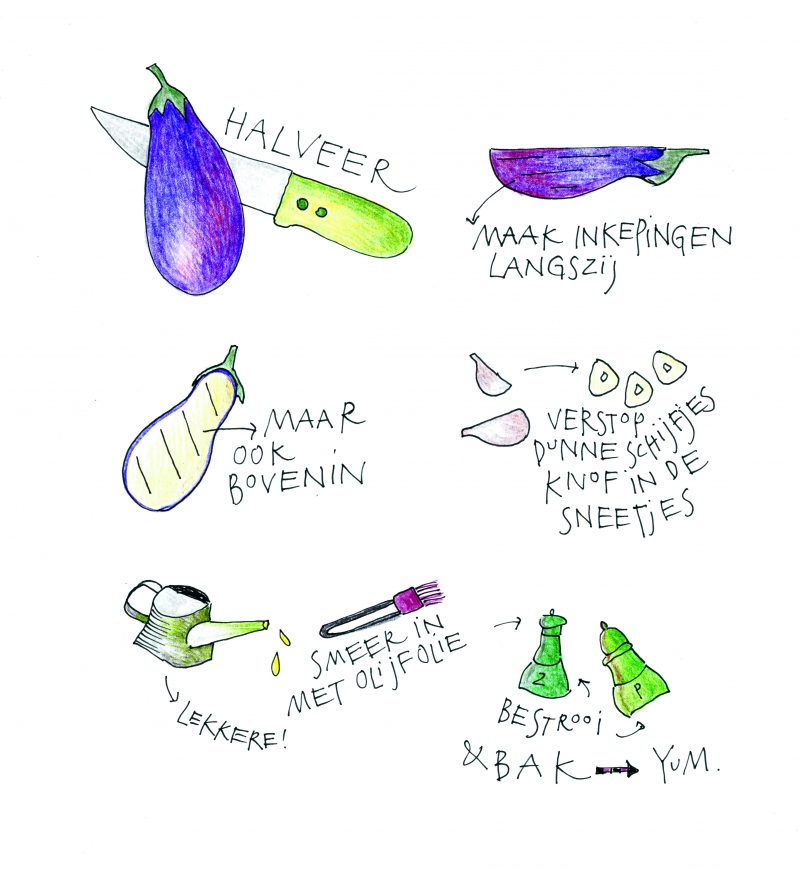 HALVEER
MAAK INKEPINGEN
LANGSZIJ
MAAR
OOK
BOVENIN
VERSTOP
DUNNE SCHIJFJES
KNOF IN DE
SNEETJES
LEKKERE!
SMEER IN
MET OLIJFOLIE
Z
P
BESTROOI
& BAK → YUM.